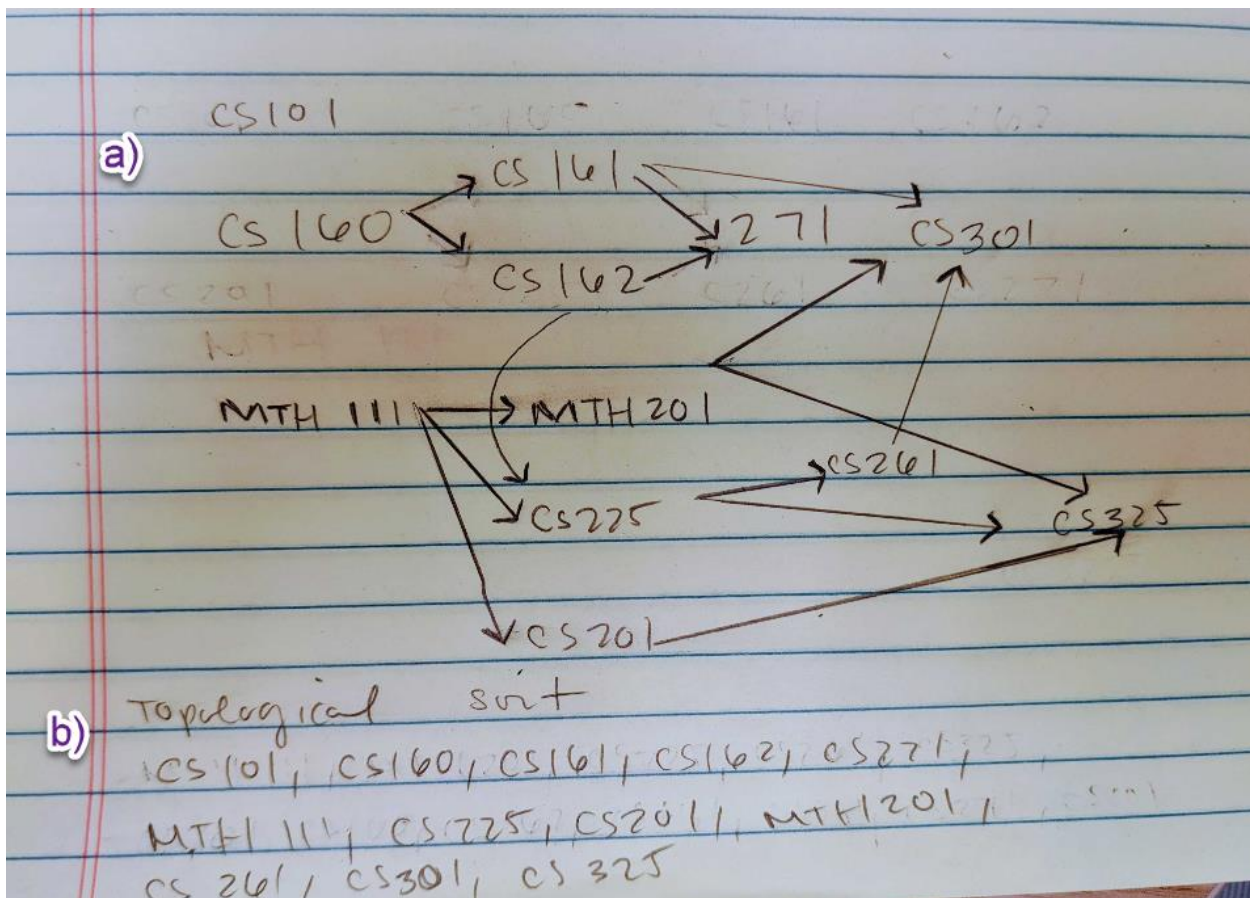 CS101
a)
CS 161
CS 160
271
CS301
CS 162
MTH 111
MTH 201
CS261
CS225
CS325
CS201
Topological sort
b)
CS101, CS160, CS161, CS162, CS271,
MTH 111, CS225, CS201, MTH201,
CS 261, CS301, CS 325